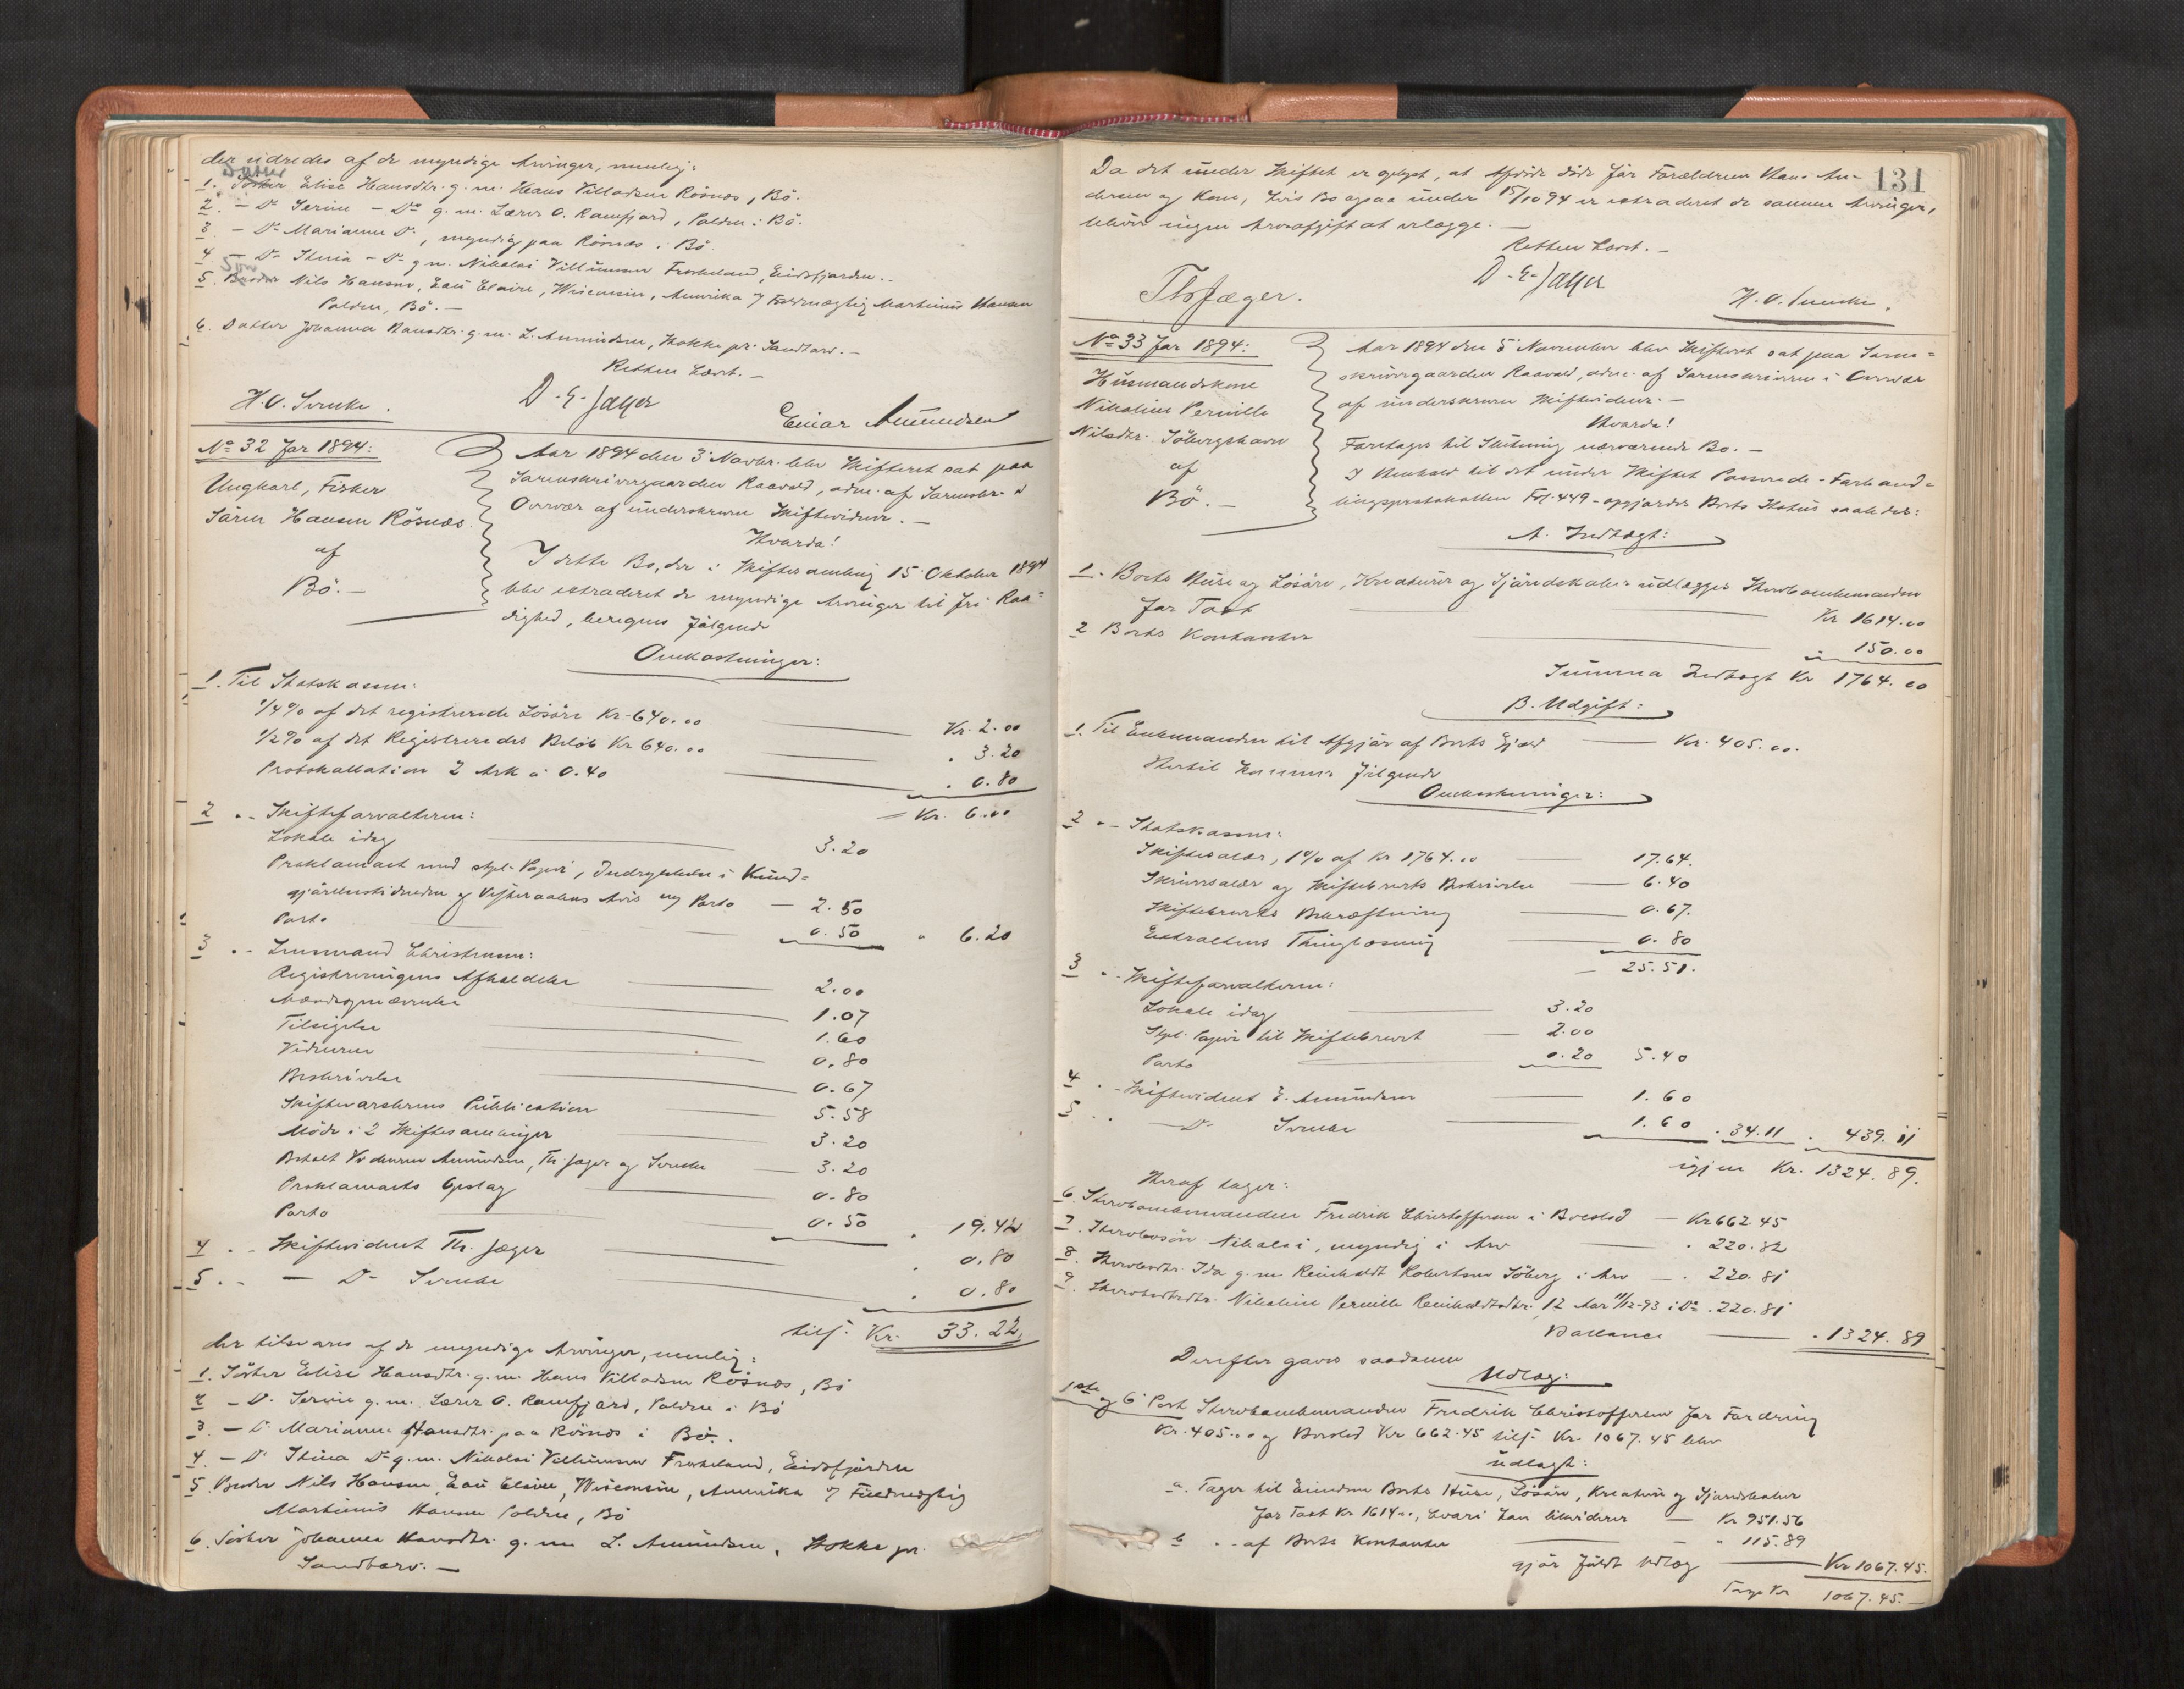 der udredes af de myndige Arvinger, nemlig:
Datter
1. Søster Elise Hansdtr. g. m. Hans Villadsen Rösnæs, Bö.
2. – Do Serine – Do g. m. Lærer O. Ramfjord, Polden i Bö.
3. – Do Marianne Do, myndig paa Rösnæs i Bö.
4. – Do Stina – Do g. m. Nikolai Villumsen Froskeland, Eidsfjorden.
Søn
5. Broder Nils Hansen, Eau Claire, Wisconsin, Amerika / Fuldmægtig Martinus Hansen
Polden, Bö. –
6. Datter Johanna Hansdtr. g. m. L. Amundsen, Stokke pr. Sandtorv. –
Retten hævt. –
H. O. Svenke. D. E. Jæger Einar Amundsen
No 32 for 1894:
Ungkarl, Fisker
Sören Hansen Rösnæs
af
Bö. –
Aar 1894 den 3' Novbr. blev Skifteret sat paa
Sorenskrivergaarden Raavold, adm. af Sorenskr. i
Overvær af underskrevne Skiftevidner. –
Hvorda!
I dette Bo, der i Skiftesamling 15' Oktober 1894
blev extraderet de myndige Arvinger til fri Raa=
dighed, beregnes fölgende
Omkostninger:
1. Til Statskassen:
1/4 % af det registrerede Lösöre Kr. 640.00 Kr. 2.00
1/2 % af det Registreredes Belöb Kr 640.00 " 3.20
Protokollation 2 Ark à 0.40 " 0.80
– Kr. 6.00
2 " – Skifteforvalteren:
Lokale idag 3.20
Proklamaet med stpl. Papir, Indrykkelse i Kund=
gjörelsestidenden og Vesteraalens Avis og Porto – 2.50
Porto 0.50 " 6.20
3 " – Lensmand Christensen:
Registreringens Afholdelse 2.00
Mændsopnævnelse 1.07
Tilsigelse 1.60
Vidnerne 0.80
Beskrivelse 0.67
Skiftevarslernes Publication 5.58
Möde i 2 Skiftesamlinger 3.20
Betalt Vidnerne Amundsen, Th. Jæger og Svenke 3.20
Proklamaets Opslag 0.80
Porto 0.50 " 19.42
4 " – Skiftevidnet Th. Jæger " 0.80
5 " – – Do Svenke " 0.80
tils. Kr. 33.22.
der tilsvares af de myndige Arvinger, nemlig:
1. Söster Elise Hansdtr. g. m. Hans Villadsen Rösnæs, Bö
2 – Do Serine g. m. Lærer O. Ramfjord, Polden i Bö
3. – Do Marianne Hansdtr. paa Rösnæs i Bö.
4. – Do Stina Do g. m. Nikolai Villumsen Froskeland, Eidsfjorden
5 Broder Nils Hansen, Eau Claire, Wisconsin, Amerika / Fuldmægtig
Martinus Hansen Polden, Bö
6. Söster Johanna Hansdtr. g. m. L. Amundsen, Stokke pr.
Sandtorv. –
131
Da det under Skiftet er oplyst, at Afdöde döde för Forældrene Hans An-
dersen og Kone, hvis Bo ogsaa under 15/10 94 er extraderet de samme Arvinger,
bliver ingen Arveafgift at erlægge. –
Retten hævt. –
Th. Jæger. D. E. Jæger H. O. Svenke.
No 33 for 1894:
Husmandskone
Nikoline Pernille
Nilsdtr. Söbergshavn
af
Bö. –
Aar 1894 den 5' November blev Skifteret sat paa Soren=
skrivergaarden Raavold, adm. af Sorenskriveren i Overvær
af underskrevne Skiftevidner. –
Hvorda!
Foretages til Slutning nærværende Bo. –
I Henhold til det under Skiftet Passerede – Forhand=
lingsprotokollen Fol. 449 – opgjordes Boets Status saaledes:
A. Indtægt:
1. Boets Huse og Lösöre, Kreaturer og Fjæredskaber udlægges Stervboenkemanden
for Taxt Kr 1614.00
2 Boets Kontanter " 150.00
Summa Indtægt Kr 1764.00
B. Udgift:
1. Til Enkemanden til Afgjör af Boets Gjæld Kr. 405.00.
Hertil kommer fölgende
Omkostninger:
2 " – Statskassen:
Skiftesalær, 1 % af Kr 1764.00 17.64.
Skriversalær og Skiftebrevets Beskrivelse 6.40
Skiftebrevets Bekræftning 0.67.
Extraktens Thinglæsning 0.80
– 25.51.
3 " – Skifteforvalteren:
Lokale idag 3.20
Stpl. Papir til Skiftebrevet 2.00
Porto 0.20 5.40
4 " – Skiftevidnet E. Amundsen 1.60
5 " – Do Svenke 1.60 " 34.11 " 439.11
igjen Kr. 1324.89.
Heraf tager:
6. Stervboenkemanden Fredrik Christoffersen i Boeslod – Kr 662.45
7. Stervbosön Nikolai, myndig i Arv " 220.82
8. Stervbodtr. Ida g. m. Reinholdt Robertsen Söberg i Arv – " 220.81
9. Stervbodtrdtr. Nikoline Pernille Reinholdtsdtr. 12 Aar 11/12-93 i Do . 220.81
Ballance " 1324.89
Derefter gaves saadanne
Udlæg:
1ste og 6' Post Stervboenkemanden Fredrik Christoffersen for Fordring
Kr. 405.00 og Boeslod Kr 662.45 tils. Kr. 1067.45 blev
udlagt:
a. Tager til Eiendom Boets Huse, Lösöre, Kreaturer og Fjæredskaber
for Taxt Kr 1614.00, hvori han likviderer – Kr 951.56
b " – af Boets Kontanter " 115.89
gjör fuldt Udlæg Kr 1067.45.
Transp. Kr 1067.45. –